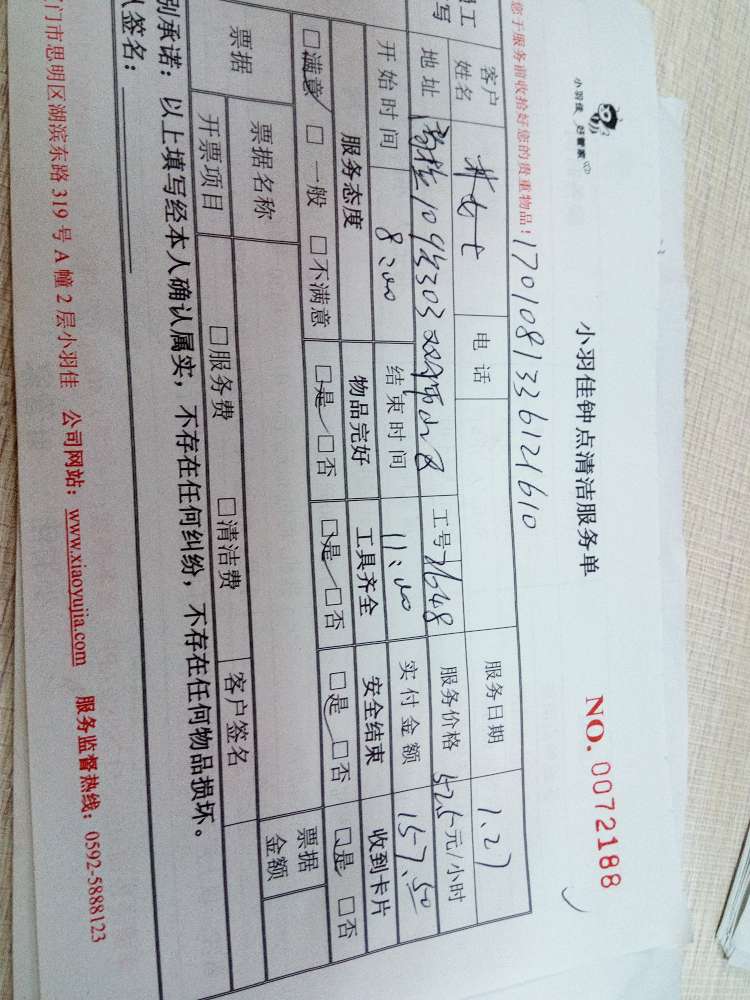 小羽佳 好管家
小羽佳钟点清洁服务单
NO. 0072188
您于服务前收拾好您的贵重物品！
1701081336121610
客户姓名 电话 服务日期 1.27
地址 工号 21648 服务价格 52.5元/小时
开始时间 8:00 结束时间 11:00 实付金额 157.50
服务态度 物品完好 工具齐全 安全结束 收到卡片
□满意 □一般 □不满意 □是 □否 □是 □否 □是 □否 □是 □否
票据 票据名称 票据金额
开票项目 □服务费 □清洁费 客户签名
别承诺：以上填写经本人确认属实，不存在任何纠纷，不存在任何物品损坏。
人签名：
门市思明区湖滨东路 319 号 A 幢 2 层小羽佳 公司网站：www.xiaoyujia.com 服务监督热线：0592-5888123